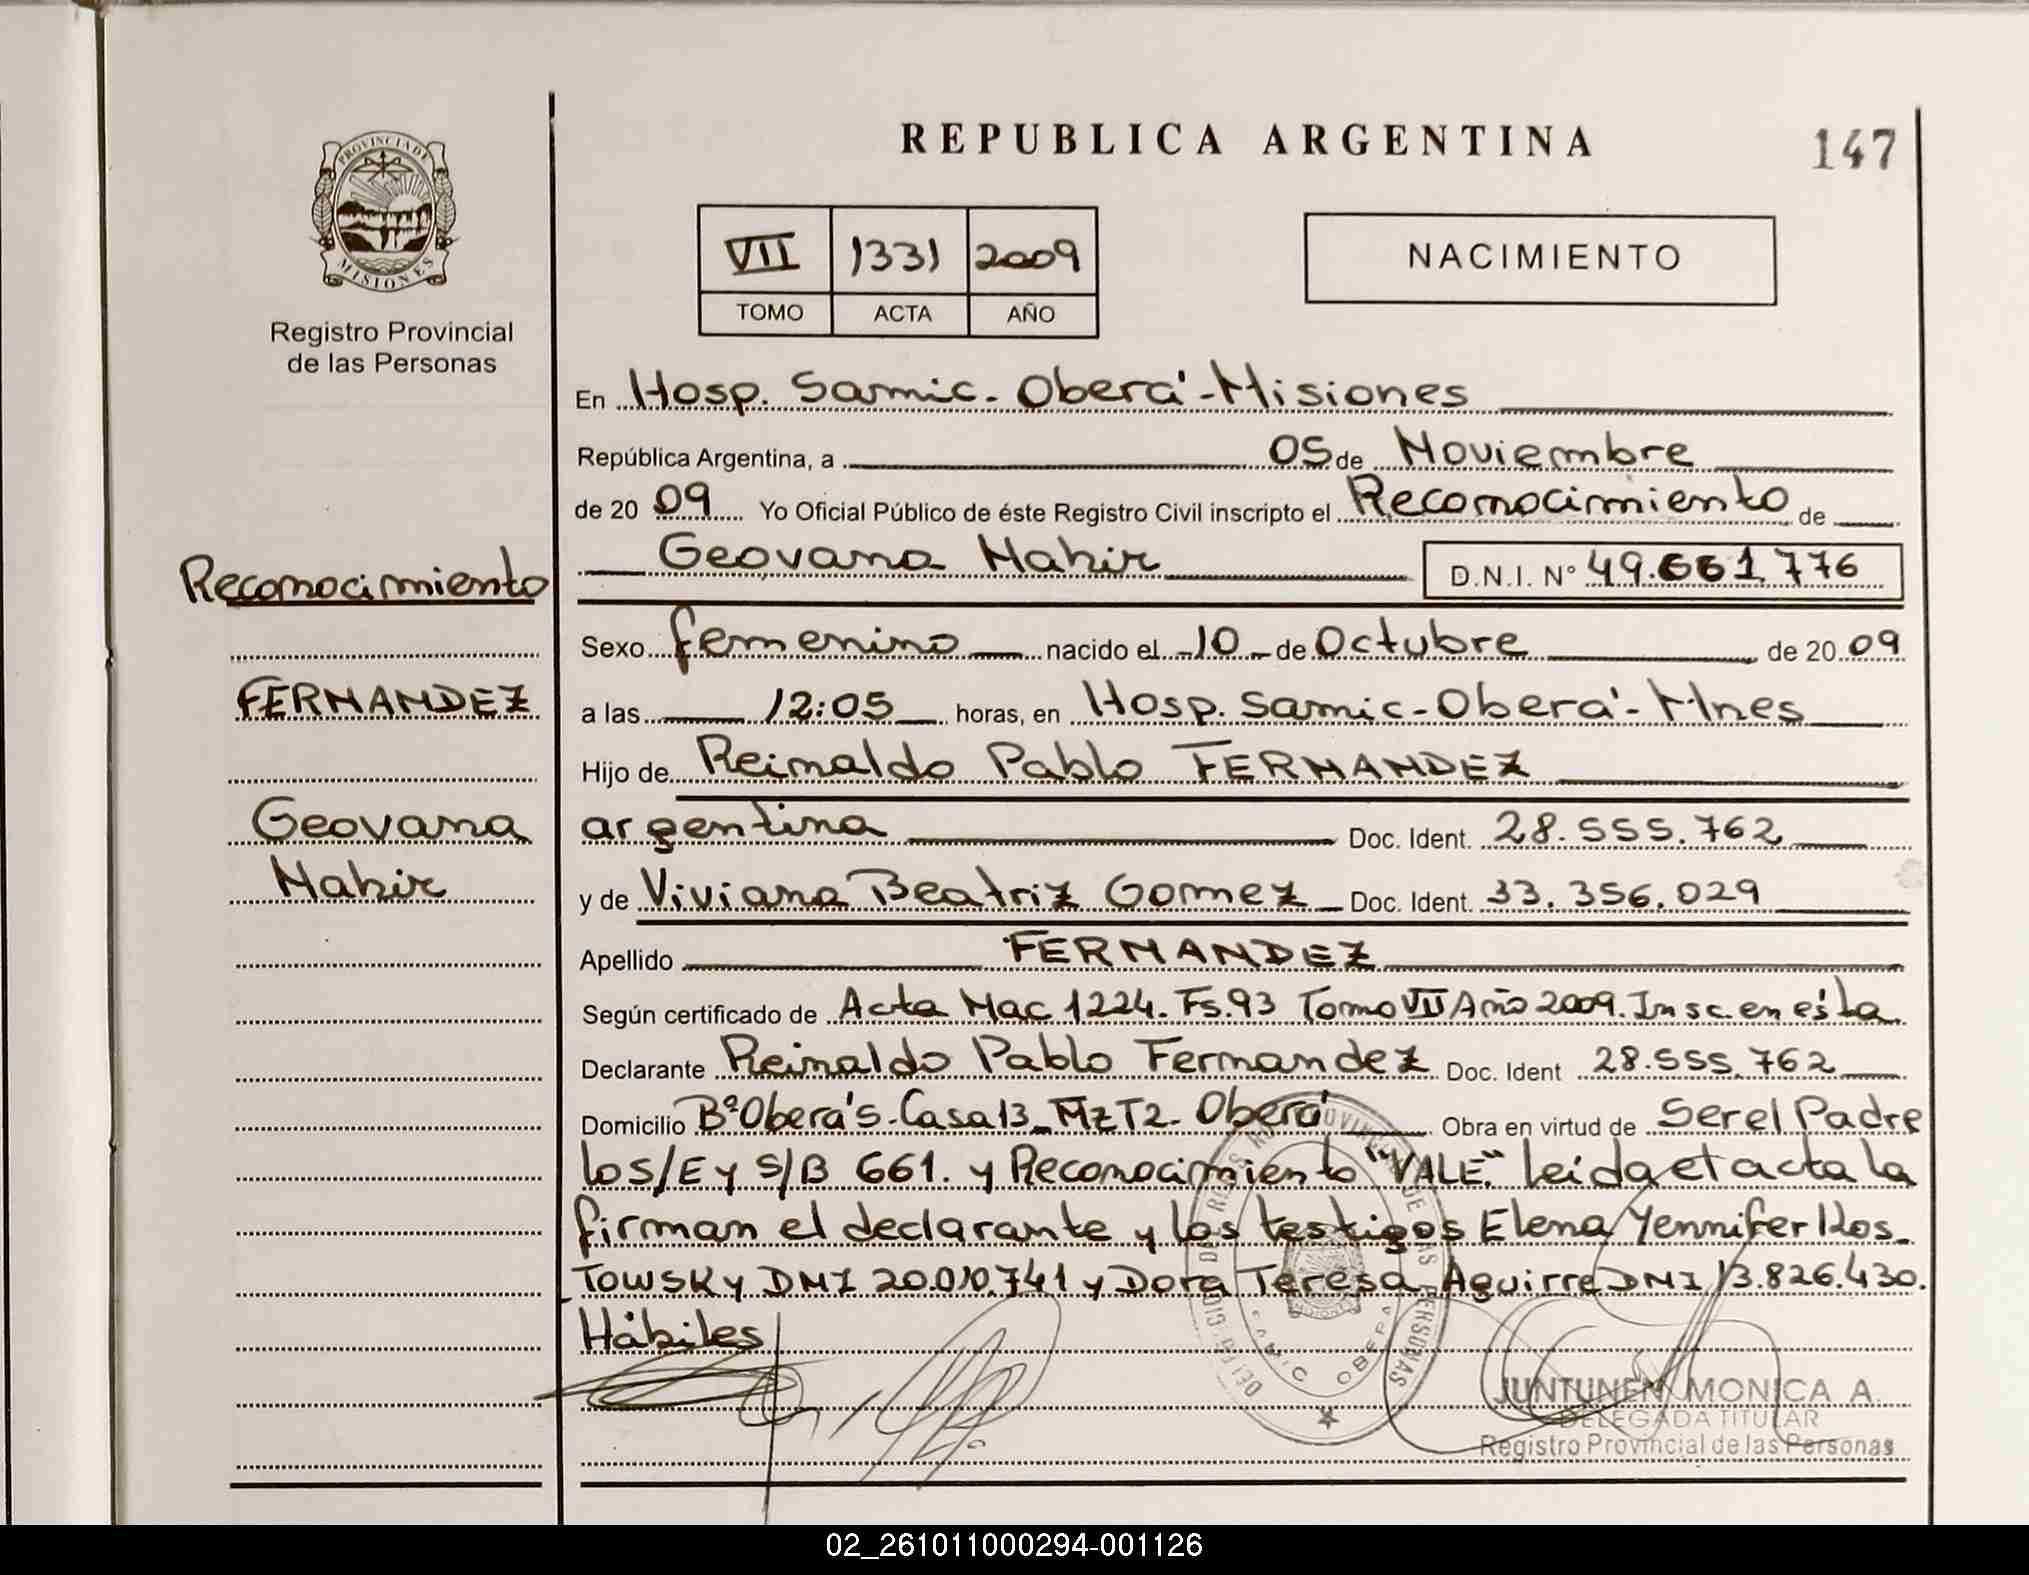 REPUBLICA ARGENTINA
147
PROVINCIA DE
MISIONES
Registro Provincial
de las Personas
VII 1331 2009
TOMO ACTA AÑO
NACIMIENTO
En Hosp. Samic. Oberá - Misiones
República Argentina, a 05 de Noviembre
de 2009 Yo Oficial Público de éste Registro Civil inscripto el Reconocimiento de
Geovana Nahir D.N.I. N° 49.661.776
Reconocimiento
FERNANDEZ
Geovana
Nahir
Sexo femenino nacido el 10 de Octubre de 2009
a las 12:05 horas, en Hosp. Samic - Oberá - Mnes
Hijo de Reinaldo Pablo FERNANDEZ
argentina Doc. Ident. 28.555.762
y de Viviana Beatriz Gomez Doc. Ident. 33.356.029
Apellido FERNANDEZ
Según certificado de Acta Nac 1224. Fs. 93 Tomo VII Año 2009. Insc. en ésta
Declarante Reinaldo Pablo Fernandez Doc. Ident 28.555.762
Domicilio Bº Oberá 5. Casa 13 Mz T2 - Oberá Obra en virtud de Ser el Padre
lo S/E y S/B 661. y Reconocimiento "VALE". leída el acta la
firman el declarante y los testigos Elena Yennifer Kos
towsky DNI 20.010.741 y Dora Teresa Aguirre DNI 13.826.430.
Hábiles
JUNTUNEN MONICA A.
DELEGADA TITULAR
Registro Provincial de las Personas
02_261011000294-001126